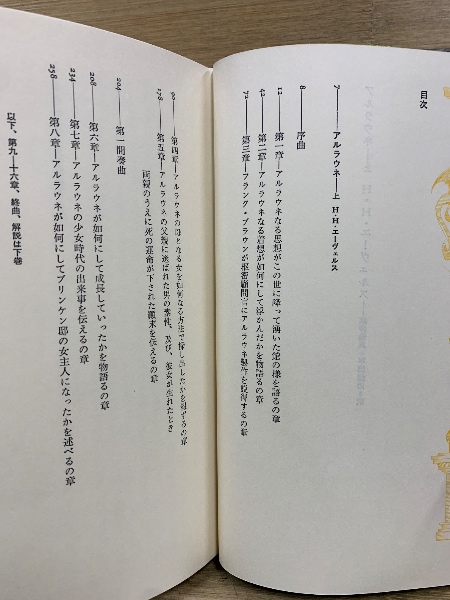 目次
7——アルラウネ——上 H・H・エーヴェルス
8——序曲
13——第一章——アルラウネなる思想がこの世に降って湧いた館の様を語るの章
42——第二章——アルラウネなる着想が如何にして浮かんだかを物語るの章
72——第三章——フランク・ブラウンが枢密顧問官にアルラウネ製作を説得するの章
第四章——アルラウネの母となる女を如何なる方法で探し出したかを報ずるの章
178——第五章——アルラウネの父親に選ばれた男の素性、及び、彼女が生れたとき
両親のうえに死の運命が下された顚末を伝えるの章
204——第一間奏曲
208——第六章——アルラウネが如何にして成長していったかを物語るの章
234——第七章——アルラウネの少女時代の出来事を伝えるの章
258——第八章——アルラウネが如何にしてブリンケン邸の女主人になったかを述べるの章
以下、第九—十六章、終曲、解説は下巻